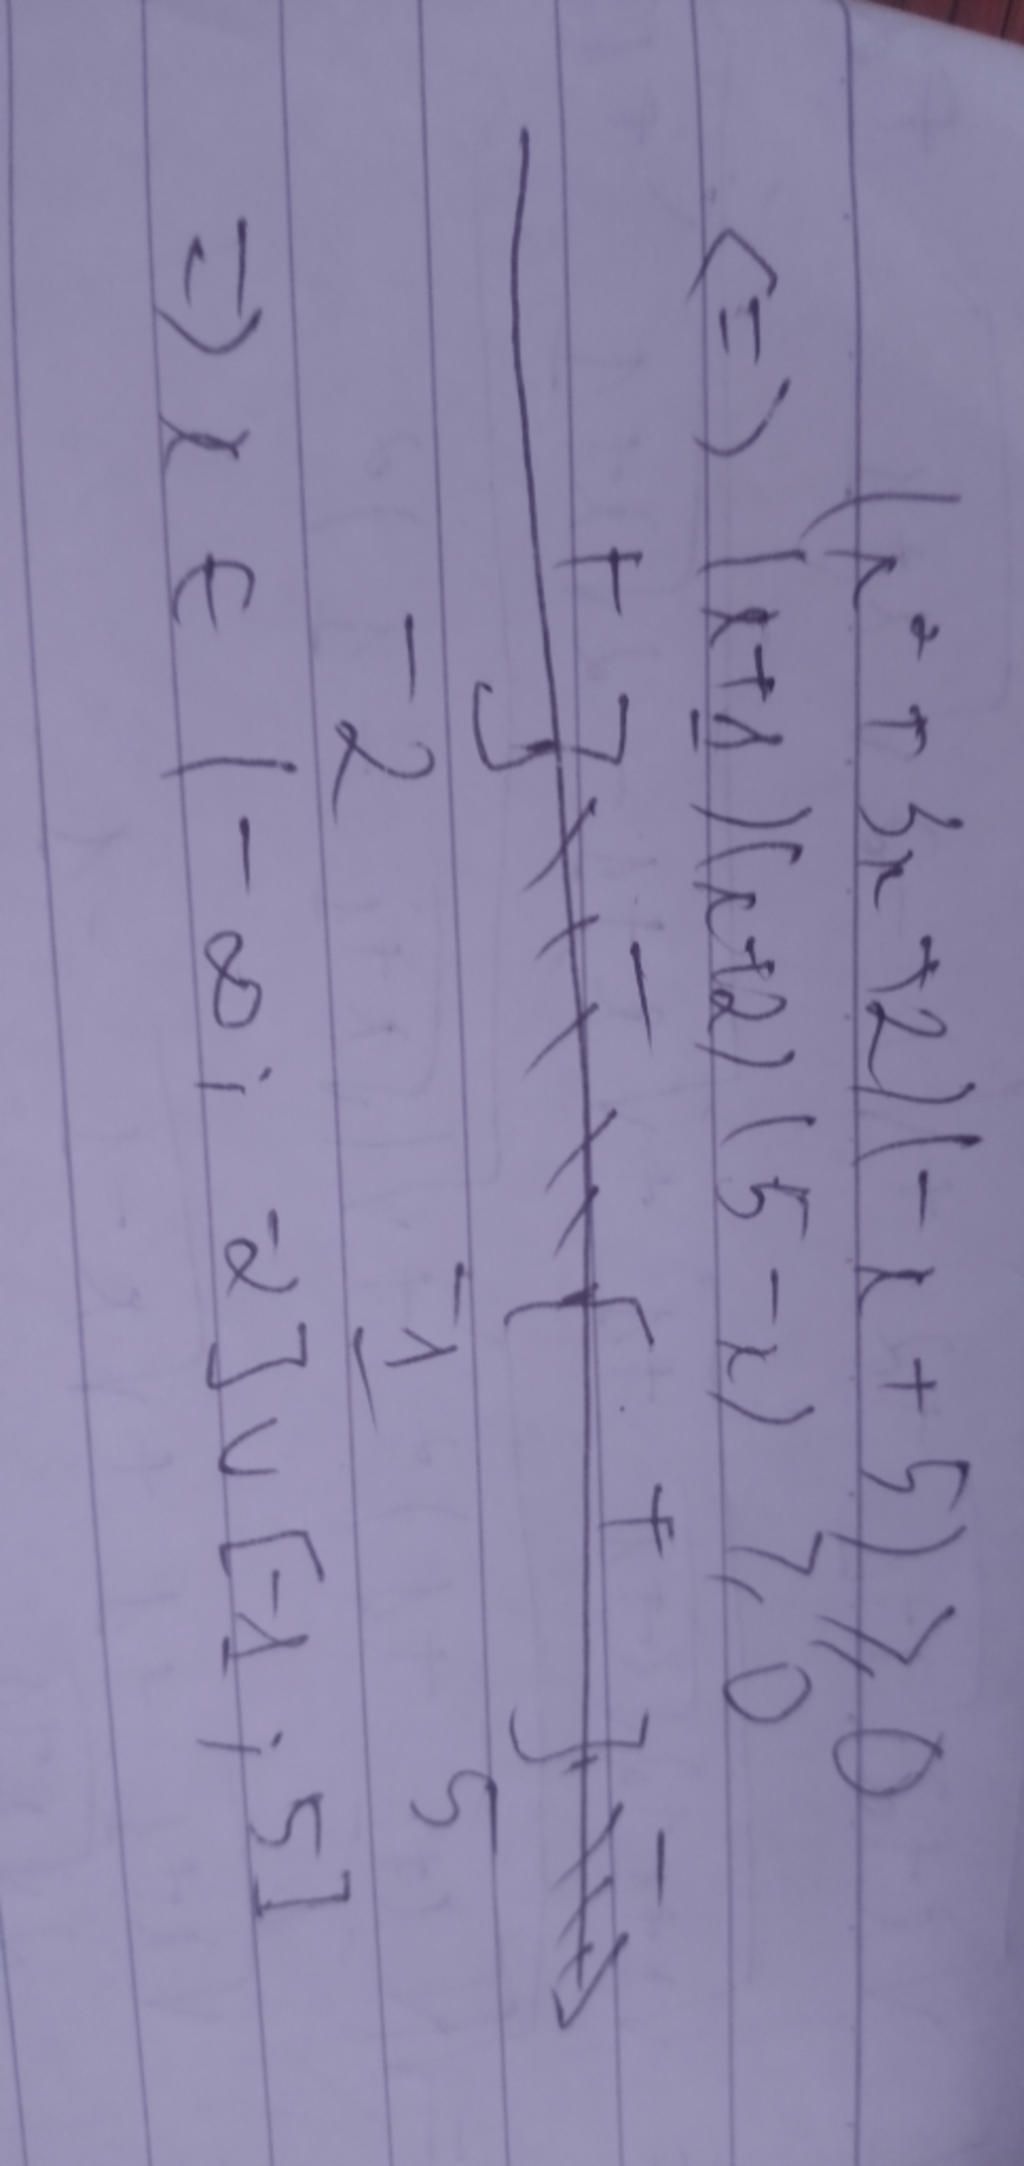 (x² + 3x + 2)(-x + 5) ≥ 0
<=> (x+1)(x+2)(5-x) ≥ 0
+ ] - [ + ] -
-2 -1 5
=> x ∈ (-∞; -2] ∪ [-1; 5]